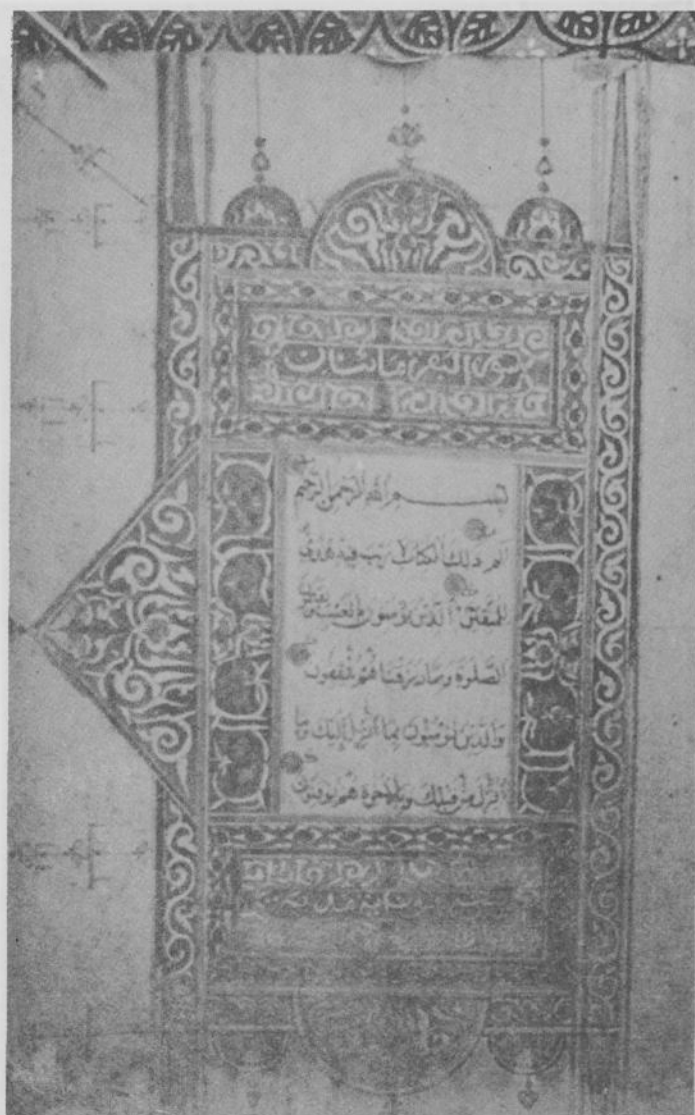 سورة البقرة مائتان
بسم الله الرحمن الرحيم
الم ذلك الكتاب لا ريب فيه هدى
للمتقين الذين يؤمنون بالغيب ويقيمون
الصلوة ومما رزقناهم ينفقون
والذين يؤمنون بما أنزل إليك وما
أنزل من قبلك وبالآخرة هم يوقنون